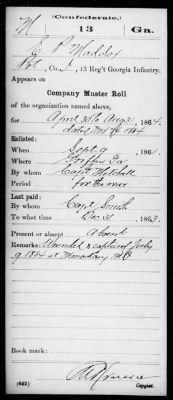 (Confederate.)
M 13 Ga.
J P Maddox
Pvt, Co. , 13 Reg't Georgia Infantry.
Appears on
Company Muster Roll
of the organization named above,
for April 30 to Aug 31, 1864.
dated Nov 1864
Enlisted:
When Sept 9, 186
Where Griffin Ga
By whom Capt Mitchell
Period for the war
Last paid:
By whom Capt Smith
To what time Dec 31, 1863.
Present or absent Absent
Remarks: Wounded & captured July
9 1864 at Monocacy Md
Book mark:
(642) Copyist.